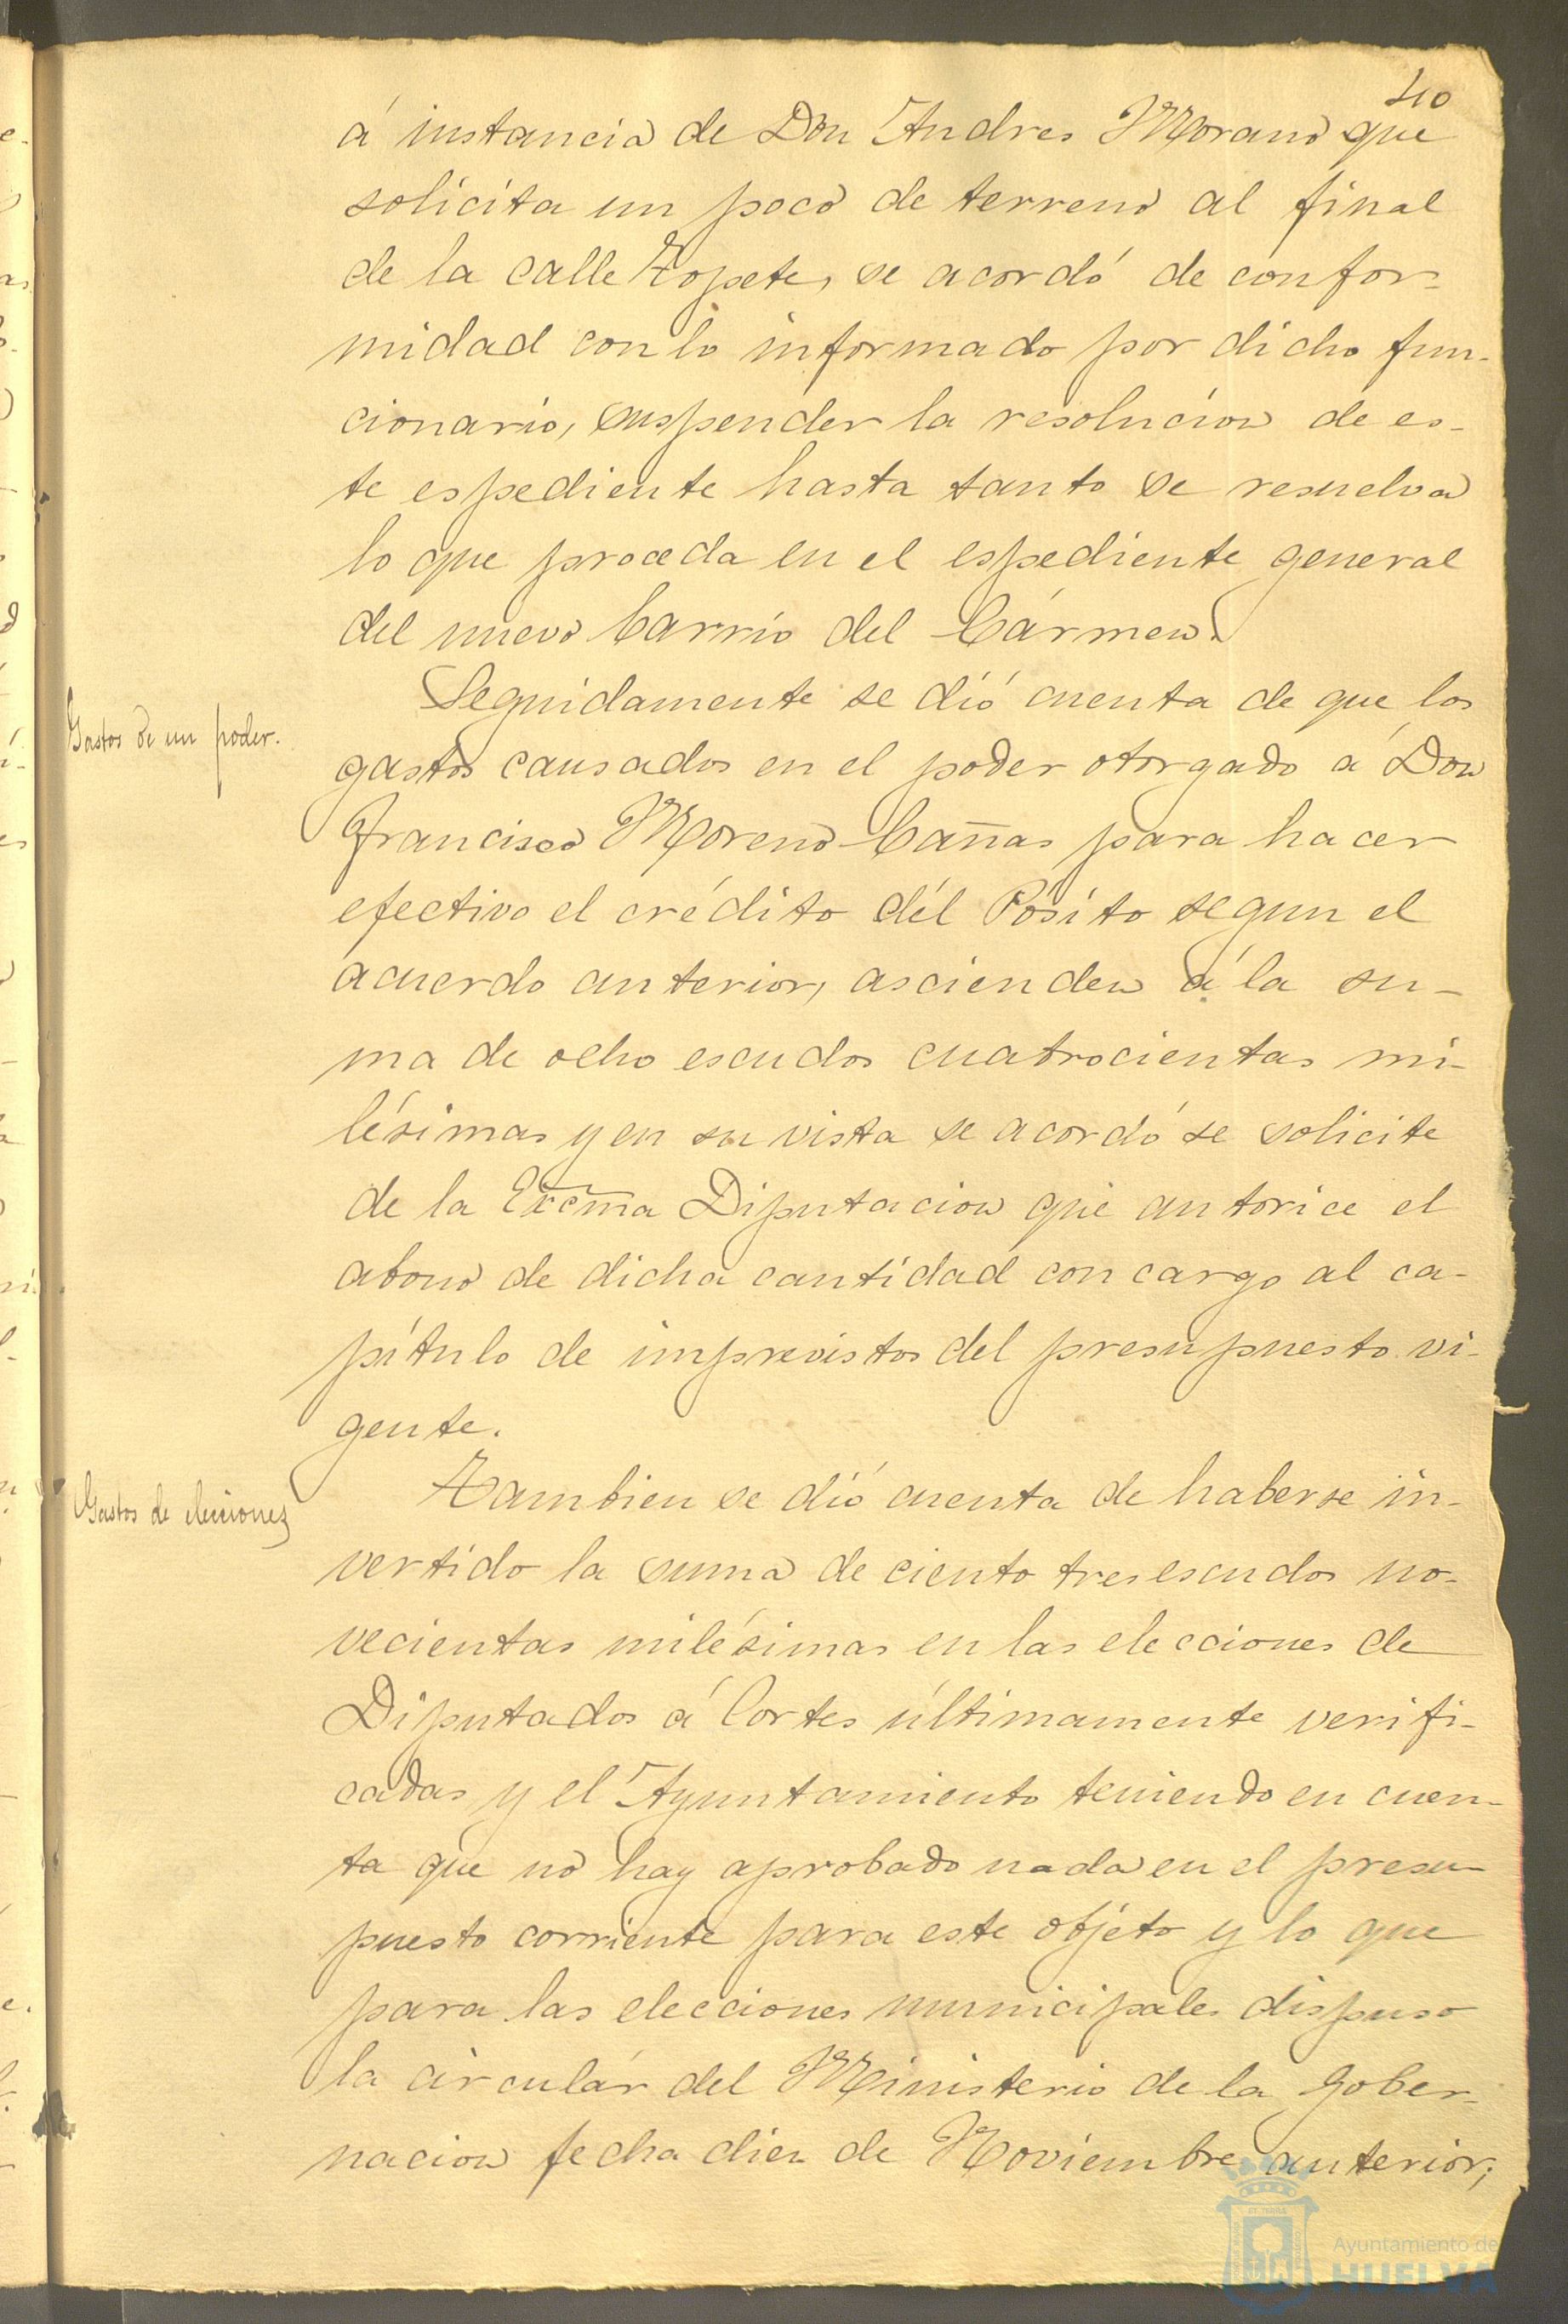 40
á instancia de Don Andres Morano que
solicita un poco de terreno al final
de la calle Topete, se acordó de confor=
midad con lo informado por dicho fun-
cionario, suspender la resolucion de es-
te espediente hasta tanto se resuelva
lo que proceda en el espediente general
del nuevo barrio del Cármen.
Gastos de un poder.
Seguidamente se dió cuenta de que los
gastos causados en el poder otorgado á Don
Francisco Moreno Cañas para hacer
efectivo el crédito dél Pósito segun el
acuerdo anterior, ascienden á la su-
ma de ocho escudos cuatrocientas mi-
lésimas y en su vista se acordó se solicite
de la Excma Diputacion que autorice el
abono de dicha cantidad con cargo al ca-
pítulo de imprevistos del presupuesto vi-
gente.
Gastos de elecciones
Tambien se dió cuenta de haberse in-
vertido la suma de ciento tres escudos no-
vecientas milésimas en las elecciones de
Diputados á Cortes últimamente verifi-
cadas y el Ayuntamiento teniendo en cuen-
ta que no hay aprobado nada en el presu-
puesto corriente para este objéto y lo que
para las elecciones municipales dispuso
la circulár del Ministerio de la Gober-
nacion fecha diez de Noviembre anterior;
Ayuntamiento de
HUELVA